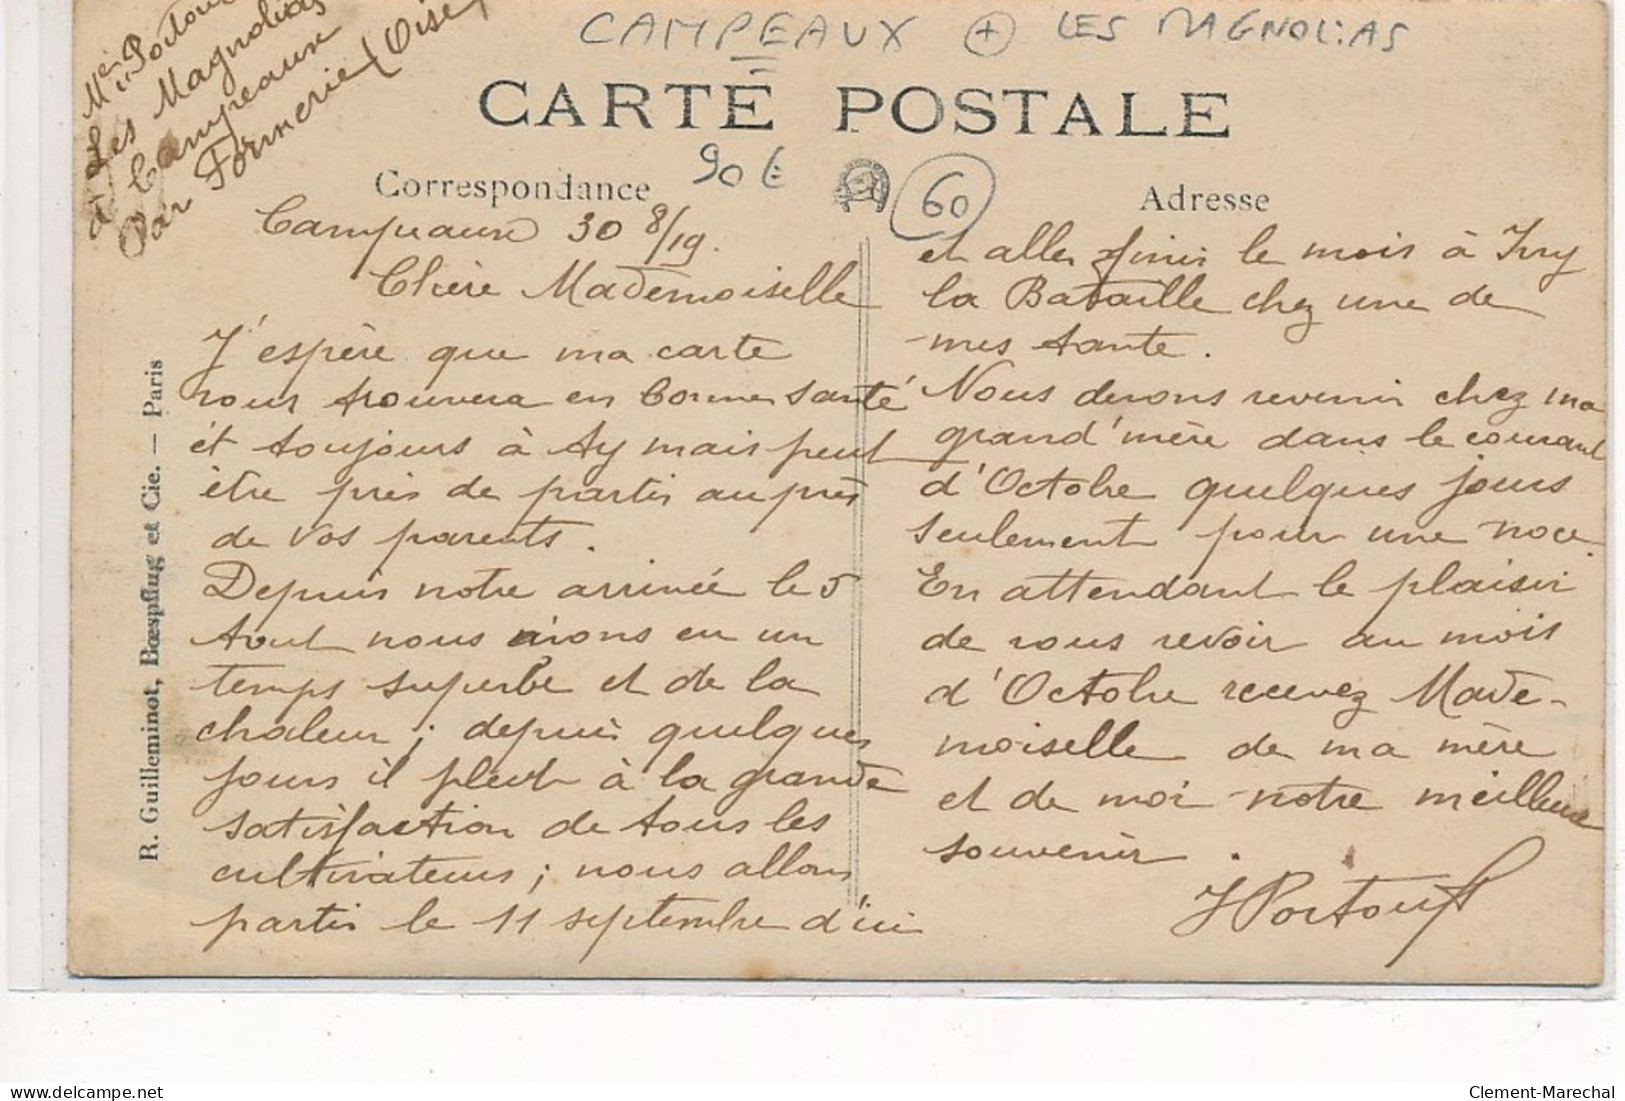 CAMPEAUX + LES MAGNOLIAS
Melle Portout
Les Magnolias
à Campeaux
Par Formerie (Oise)
CARTE POSTALE
90 €
60
Correspondance
Adresse
Campeaux 30 8/19.
Chère Mademoiselle
J'espère que ma carte
vous trouvera en bonne santé
et toujours à Ay mais peut
être près de partir auprès
de vos parents.
Depuis notre arrivée le 5
Aout nous avons eu un
temps superbe et de la
chaleur ; depuis quelques
jours il pleut à la grande
satisfaction de tous les
cultivateurs ; nous allons
partir le 11 septembre d'ici
et aller finir le mois à Ivry
la Bataille chez une de
mes tante.
Nous devons revenir chez ma
grand'mère dans le courant
d'Octobre quelques jours
seulement pour une noce.
En attendant le plaisir
de vous revoir au mois
d'Octobre recevez Made-
moiselle de ma mère
et de moi notre meilleur
souvenir.
J Portout
R. Guilleminot, Bœspflug et Cie. — Paris
www.delcampe.net
Clement-Marechal